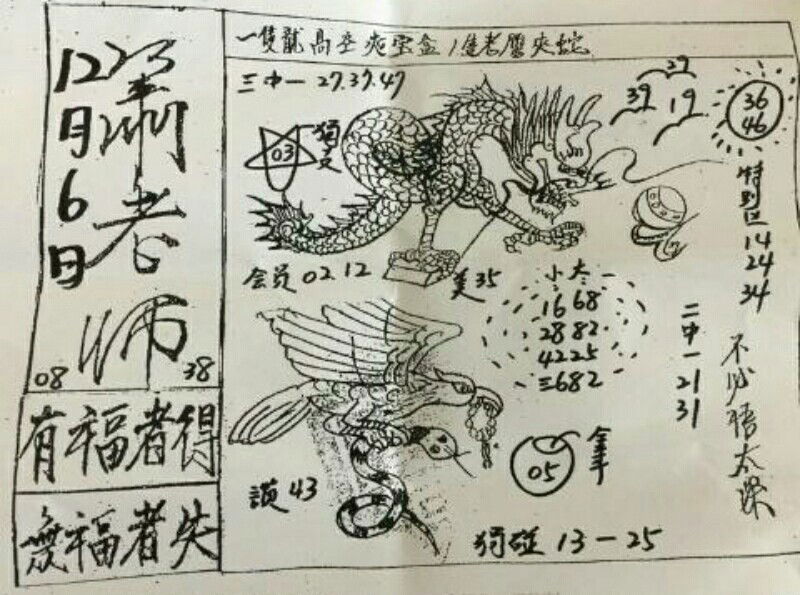 12月6日
蕭老师
08
38
有福者得
無福者失
一隻龍高空爽宝盒1隻老鹰夾蛇
三中一 27.37.47
03
獨支
29
39
19
36
46
特别区
14
24
34
会员02.12
美35
小大
16 68
28 82
42 25
三682
二中一
21
31
不必悟太深
讃43
05
獨碰 13-25